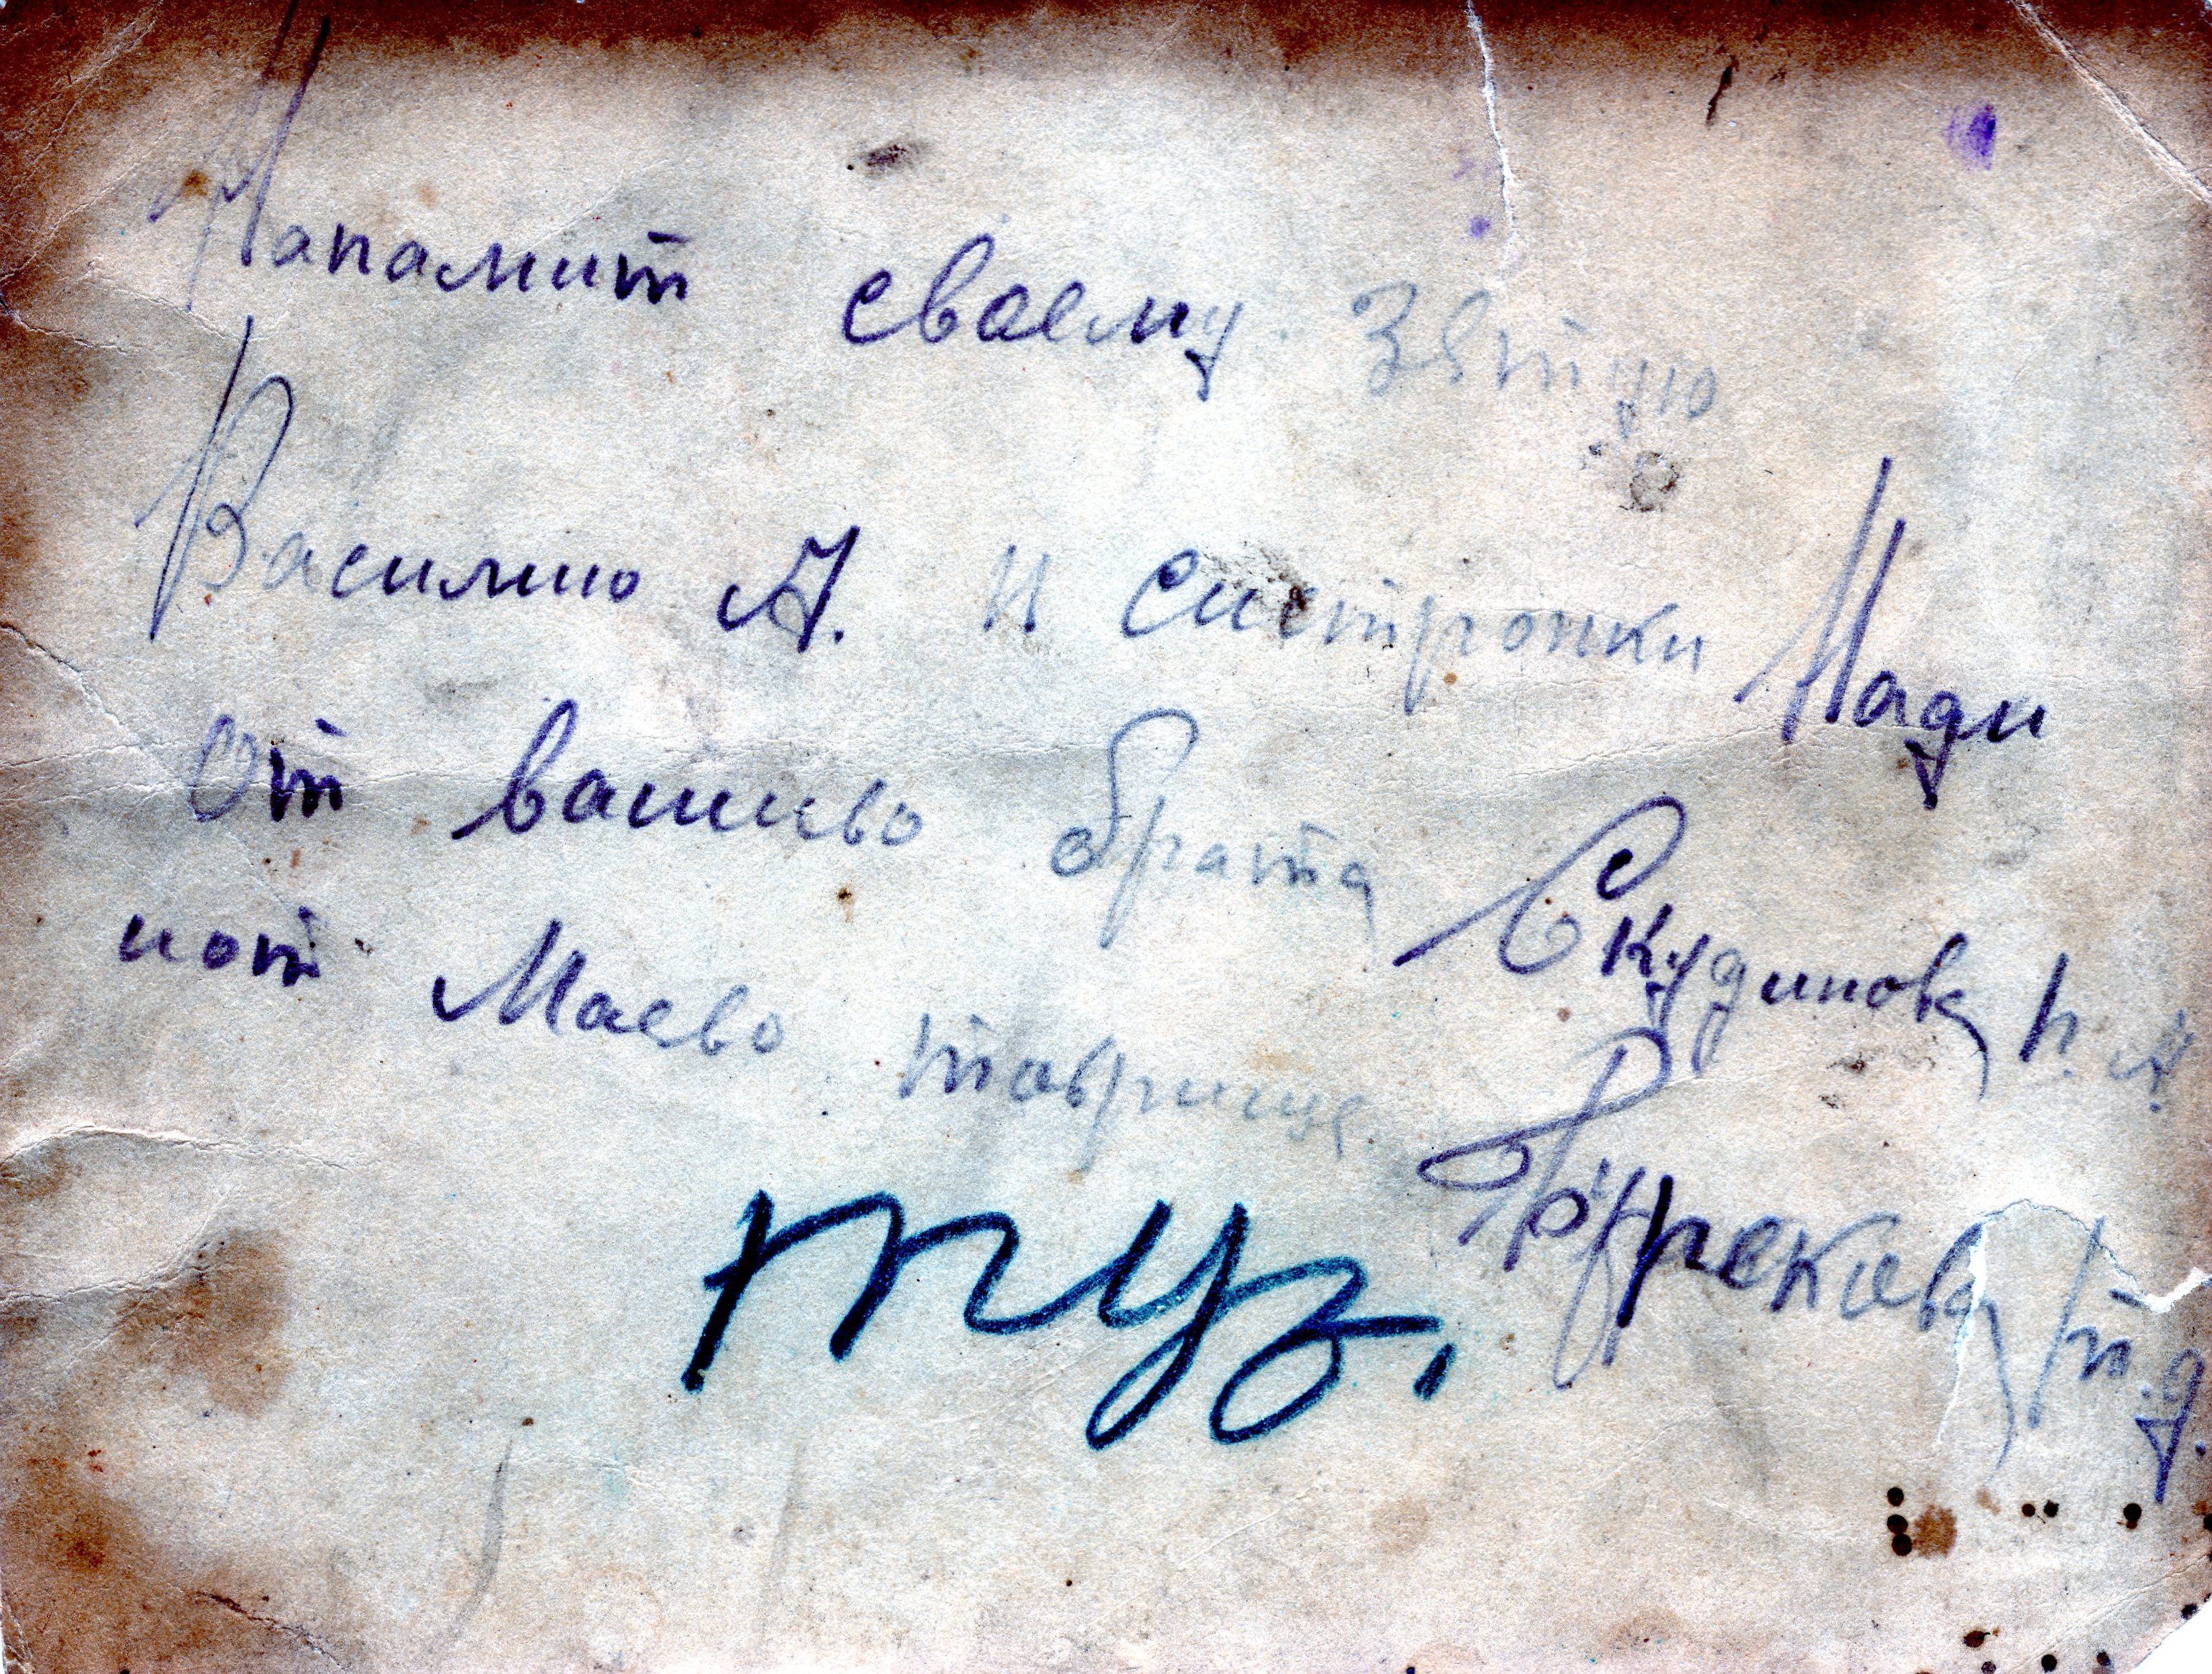 Напамит сваему Зятую
Василию А. и систронки Нади
от вашиво брата Скудинова П. А.
иот Маево таврища Фурекава Г. д.
туз.